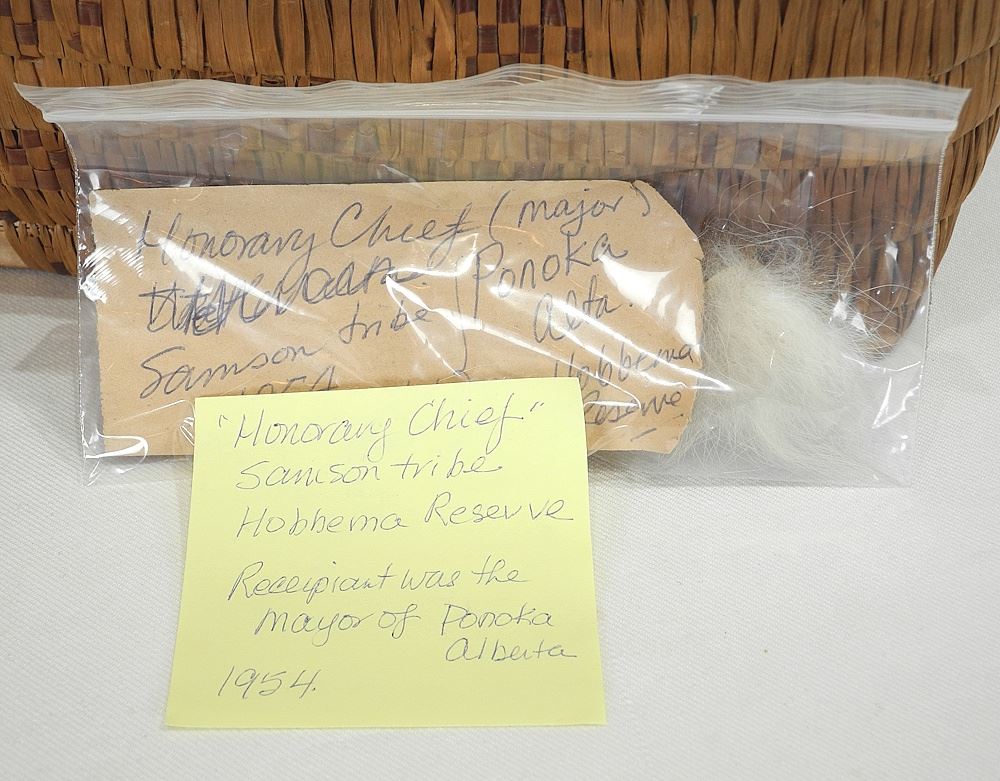 Honorary Chief (major)
Ponoka
Samson tribe Alta.
1954 Hobbema
Reserve
"Honorary Chief"
Samson tribe
Hobbema Reserve
Receipiant was the
mayor of Ponoka
Alberta
1954.